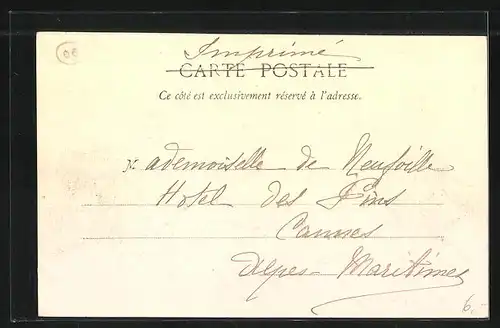 06
Imprimé
CARTE POSTALE
Ce côté est exclusivement réservé à l'adresse.
Mademoiselle de Neufville
Hotel des Pins
Cannes
Alpes-Maritimes
6,-